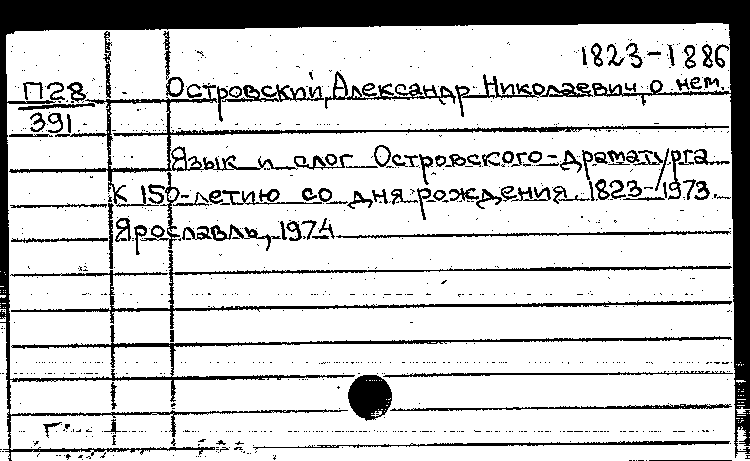 1823-1886
П28 Островский, Александр Николаевич, о нем.
391
Язык и слог Островского-драматурга
К 150-летию со дня рождения. 1823-1973.
Ярославль, 1974